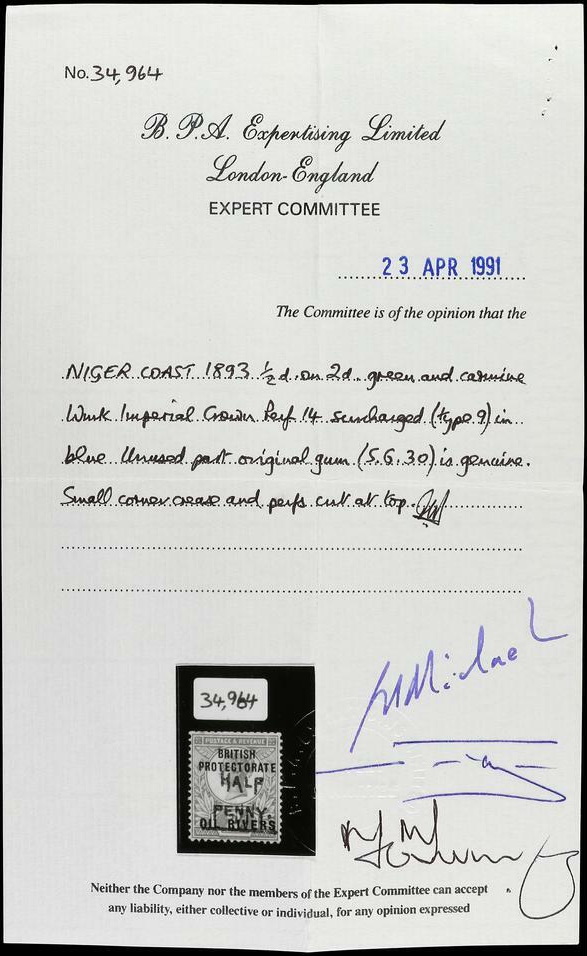 No. 34,964
B. P.A. Expertising Limited
London-England
EXPERT COMMITTEE
23 APR 1991
The Committee is of the opinion that the
NIGER COAST 1893 ½d. on 2d. green and carmine
Wmk Imperial Crown Perf 14 surcharged (type 9) in
blue Unused part original gum (S.G. 30) is genuine.
Small corner crease and perfs cut at top.
34,964
POSTAGE & REVENUE
BRITISH
PROTECTORATE
HALF
PENNY.
OIL RIVERS
Neither the Company nor the members of the Expert Committee can accept
any liability, either collective or individual, for any opinion expressed